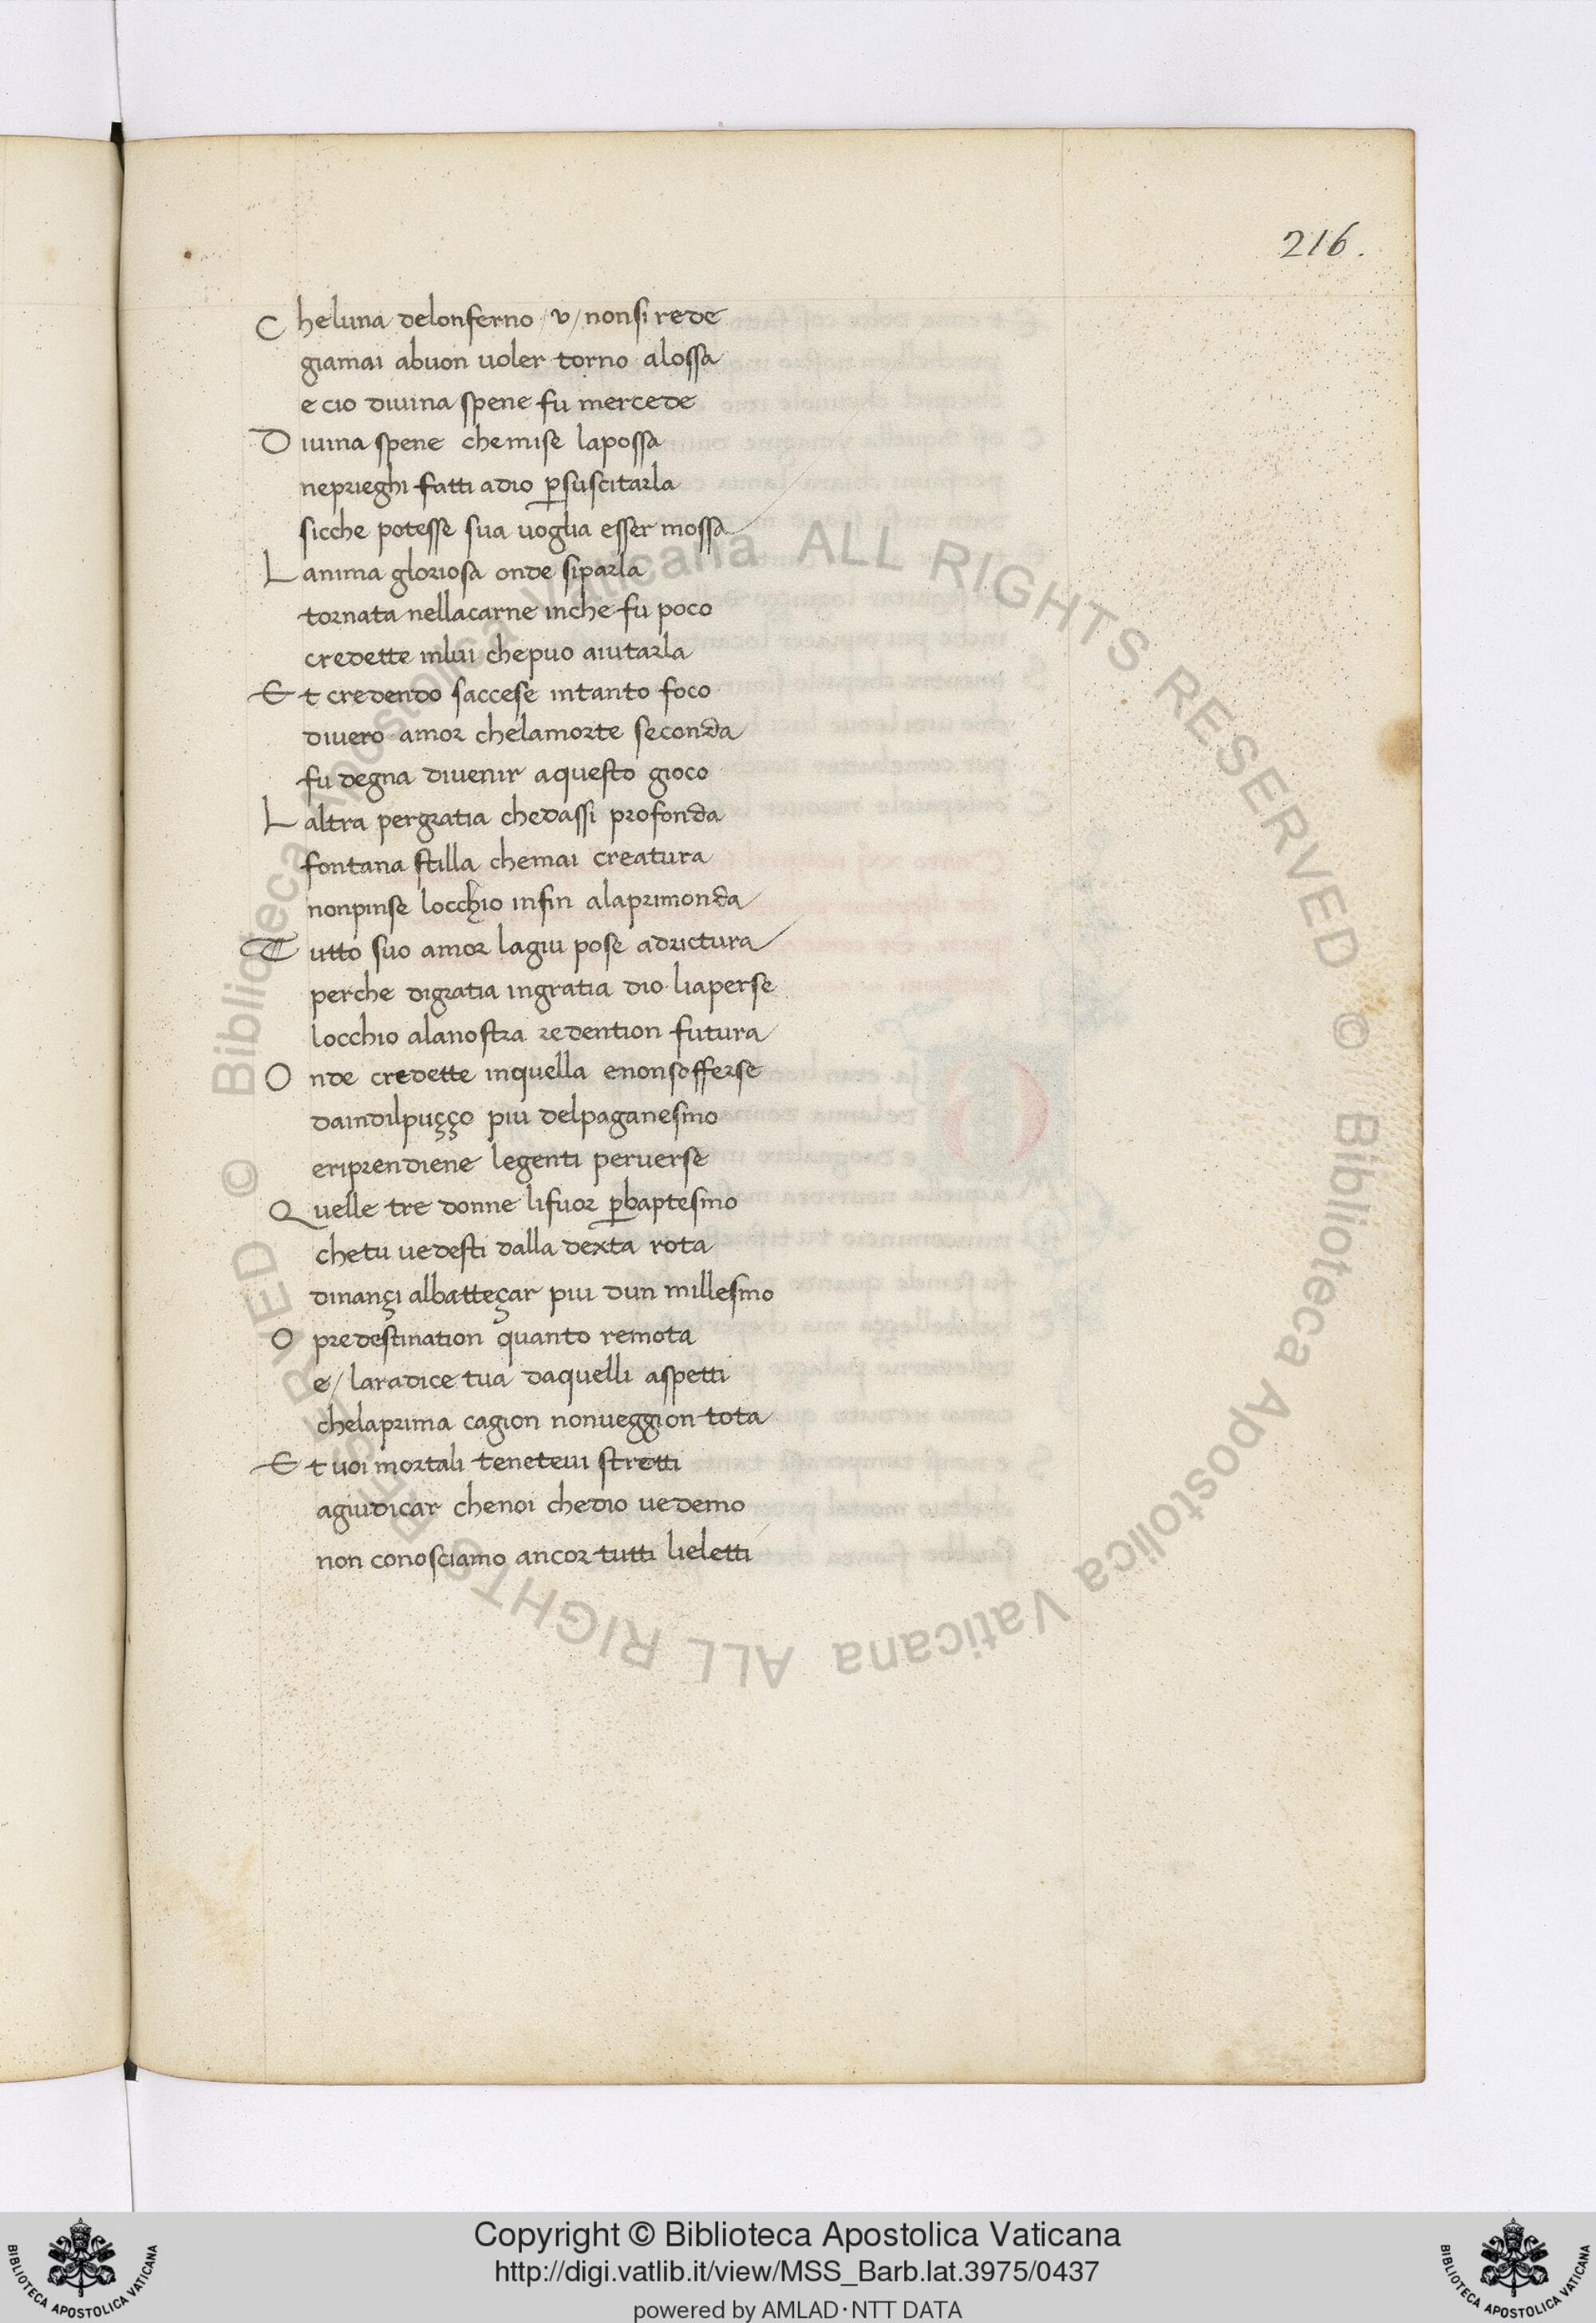 216.
C heluna delonferno /v/ nonsi rede
giamai abuon uoler torno alossa
e cio diuina spene fu mercede
D iuina spene che mise lapossa
neprieghi fatti adio ꝑsuscitarla
sicche potesse sua uoglia esser mossa
L anima gloriosa onde siparla
tornata nellacarne inche fu poco
credette inlui chepuo aiutarla
E t credendo saccese intanto foco
diuero amor chelamorte seconda
fu degna diuenir aquesto gioco
L altra pergratia chedassi profonda
fontana stilla chemai creatura
nonpinse locchio infin alaprimonda
T utto suo amor lagiu pose adrictura
perche digratia ingratia dio liaperse
locchio alanostra redention futura
O nde credette inquella enonsofferse
daindilpuçço piu delpaganesmo
eriprendiene legenti peruerse
Q uelle tre donne lifuor ꝑbaptesmo
chetu uedesti dalla dexta rota
dinançi albatteçar piu dun millesmo
O predestination quanto remota
e/ laradice tua daquelli aspetti
chelaprima cagion nonueggion tota
E t uoi mortali teneteui stretti
agiudicar chenoi chedio uedemo
non conosciamo ancor tutti lieletti
© Biblioteca Apostolica Vaticana ALL RIGHTS RESERVED © Biblioteca Apostolica Vaticana ALL RIGHTS RESERVED
Copyright © Biblioteca Apostolica Vaticana
http://digi.vatlib.it/view/MSS_Barb.lat.3975/0437
powered by AMLAD·NTT DATA
BIBLIOTECA APOSTOLICA VATICANA
BIBLIOTECA APOSTOLICA VATICANA